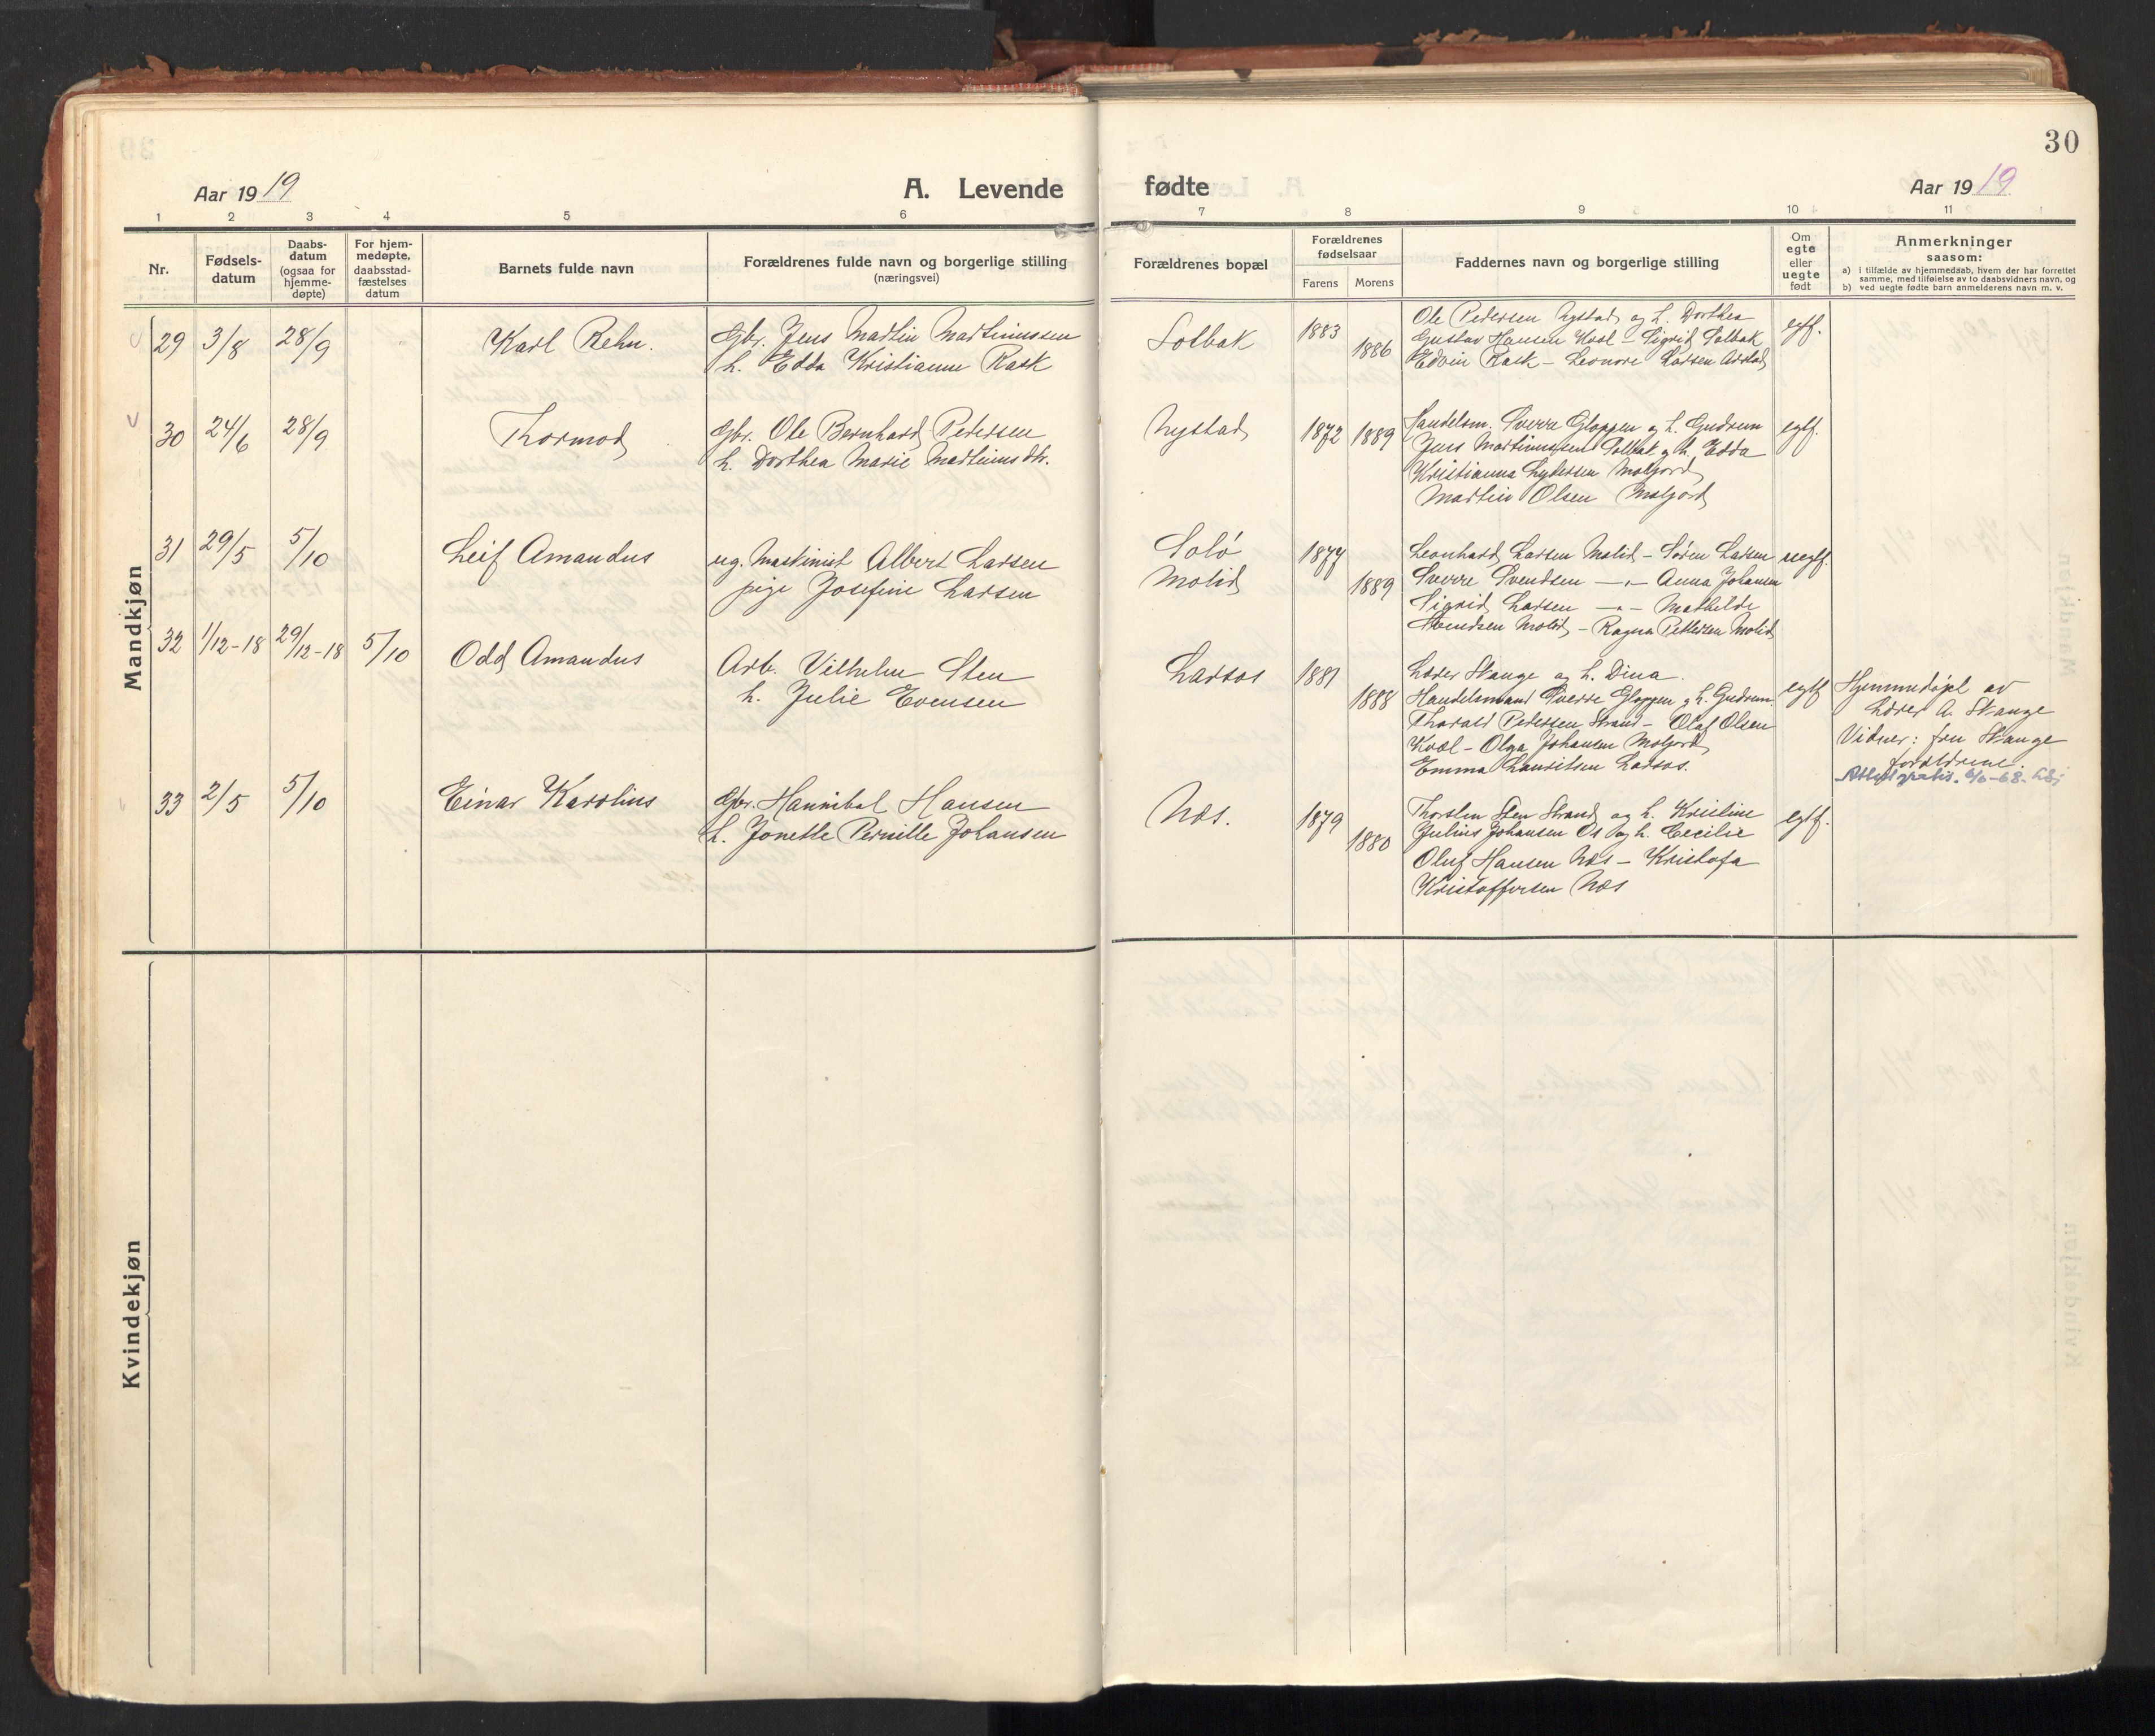 30
Aar 1919 A. Levende fødte Aar 1919
1 2 3 4 5 6 7 8 9 10 11
Nr.
Fødsels-
datum
Daabs-
datum
(ogsaa for
hjemme-
døpte)
For hjem-
medøpte,
daabsstad-
fæstelses
datum
Barnets fulde navn
Forældrenes fulde navn og borgerlige stilling
(næringsvei)
Forældrenes bopæl
Forældrenes
fødselsaar
Farens Morens
Faddernes navn og borgerlige stilling
Om
egte
eller
uegte
født
Anmerkninger
saasom:
a) i tilfælde av hjemmedaab, hvem der har forrettet
samme, med tilføielse av to daabsvidners navn, og
b) ved uegte fødte barn anmelderens navn m. v.
Mandkjøn
29 3/8 28/9 Karl Rehn.
Gbr. Jens Martin Martinussen
h. Edda Kristianne Rask
Solbak 1883 1886
Ole Pedersen Nystad og h. Dorthea
Gustav Hansen Kvæl - Sigrid Solbak
Edvin Rask - Leonore Larsen
egtf.
30 24/6 28/9 Thormod
Gbr. Ole Bernhard Pedersen
h. Dorthea Marie Martinusdtr.
Nystad 1872 1889
Handelsm. Sverre Gloppen og h. Gudrun
Jens Martinussen Solbak og h. Edda
Kristianna Lydersen Moljord
Martin Olsen Moljord
egtf.
31 29/5 5/10 Leif Amandus
ug. Maskinist Albert Larsen
pige Josefine Larsen
Solø
Molid
1877 1889
Leonhard Larsen Molid - Søren Larsen
Sverre Svendsen -"- Anna Johansen
Sigrid Larsen -"- Mathilde
Svendsen Molid - Ragna Pettersen Molid
uegtf.
32 1/12-18 29/12-18 5/10 Odd Amandus
Arb. Vilhelm Sten
h. Julie Evensen
Larsos 1881 1888
Lærer Skange og h. Dina.
Handelsmand Sverre Gloppen og h. Gudrun.
Tharald Pedersen Strand - Olaf Olsen
Kvæl - Olga Johansen Moljord
Emma Lauritsen Larsos.
egtf
Hjemmedøpt av
Lærer A. Skange
Vidner: fru Skange
forældrene.
Attest gratis. 6/6-68.
33 2/5 5/10 Einar Karolius
Gbr. Hannibal Hansen
h. Jonette Pernille Johansen
Næs. 1879 1880
Thorsten Sten Strand og h. Kristine
Julius Johansen Os og h. Cecilie
Oluf Hansen Næs - Kristofa
Kristoffersen Næs
egtf.
Kvindekjøn